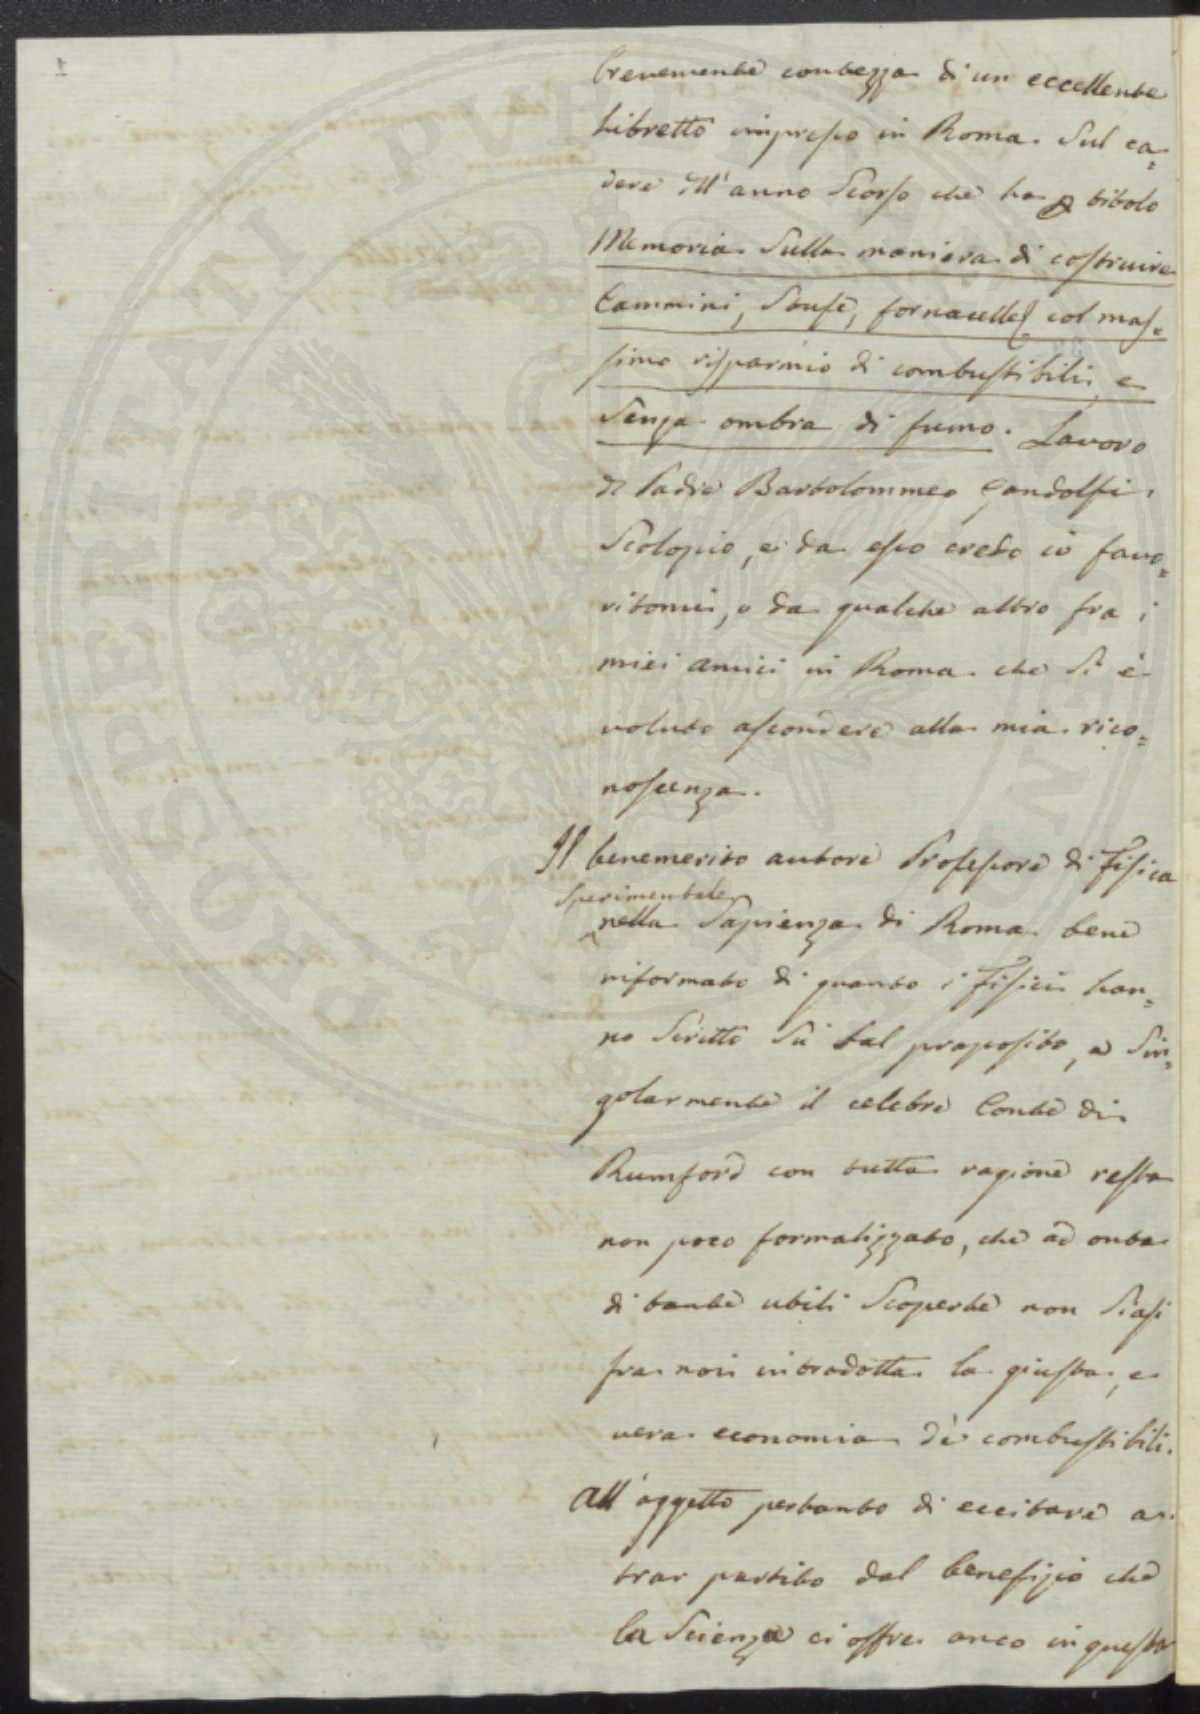 1
brevemente contezza di un eccellente
Libretto impresso in Roma sul ca=
dere dell'anno scorso che ha p titolo
Memoria sulla maniera di costruire
Cammini, Stufe, fornacelle col mas=
simo risparmio di combustibili, e
senza ombra di fumo. Lavoro
di Padre Bartolommeo Gandolfi
Scolopio, e da esso credo io favo=
ritomi, o da qualche altro fra i
miei amici in Roma che si è
voluto ascondere alla mia rico=
noscenza.
Il benemerito autore Professore di Fisica
Sperimentale
nella Sapienza di Roma bene
informato di quanto i Fisici han=
no scritto su tal proposito, e sin=
golarmente il celebre Conte di
Rumford con tutta ragione resta
non poco formalizzato, che ad onta
di tante utili scoperte non siasi
fra noi introdotta la giusta, e
vera economia de' combustibili.
All'oggetto pertanto di eccitare a
trar partito dal benefizio che
la Scienza ci offre anco in questa
PROSPERITATI PUBLICAE